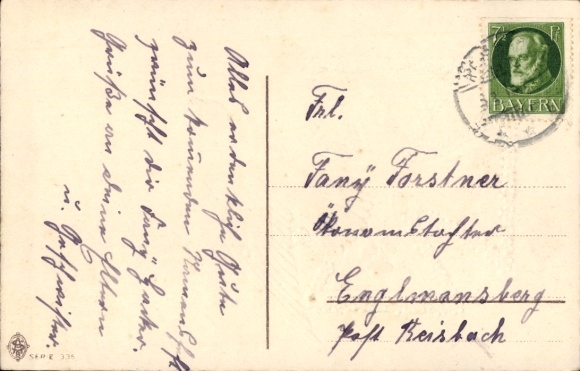 Alles erdenklich Gute
zum kommenden Namensfest
wünscht dir Fany
Grüße an deine Eltern
u. Geschwister.
7½ Pf
BAYERN
Frl.
Fany Forstner
Ökonomstochter
Englmansberg
Post Reisbach
SERIE 335